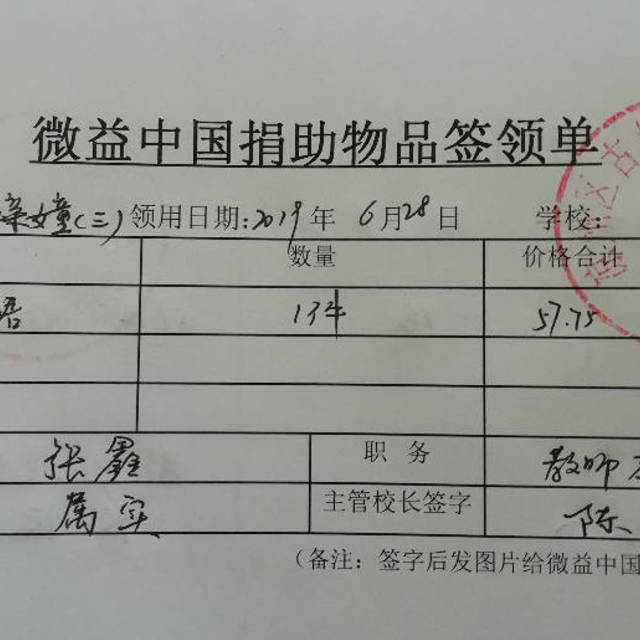 微益中国捐助物品签领单
(三) 领用日期: 2019 年 6 月 28 日 学校:
数量 价格合计
13本 57.75
张鑫 职 务 教师
属实 主管校长签字 陈
(备注: 签字后发图片给微益中国